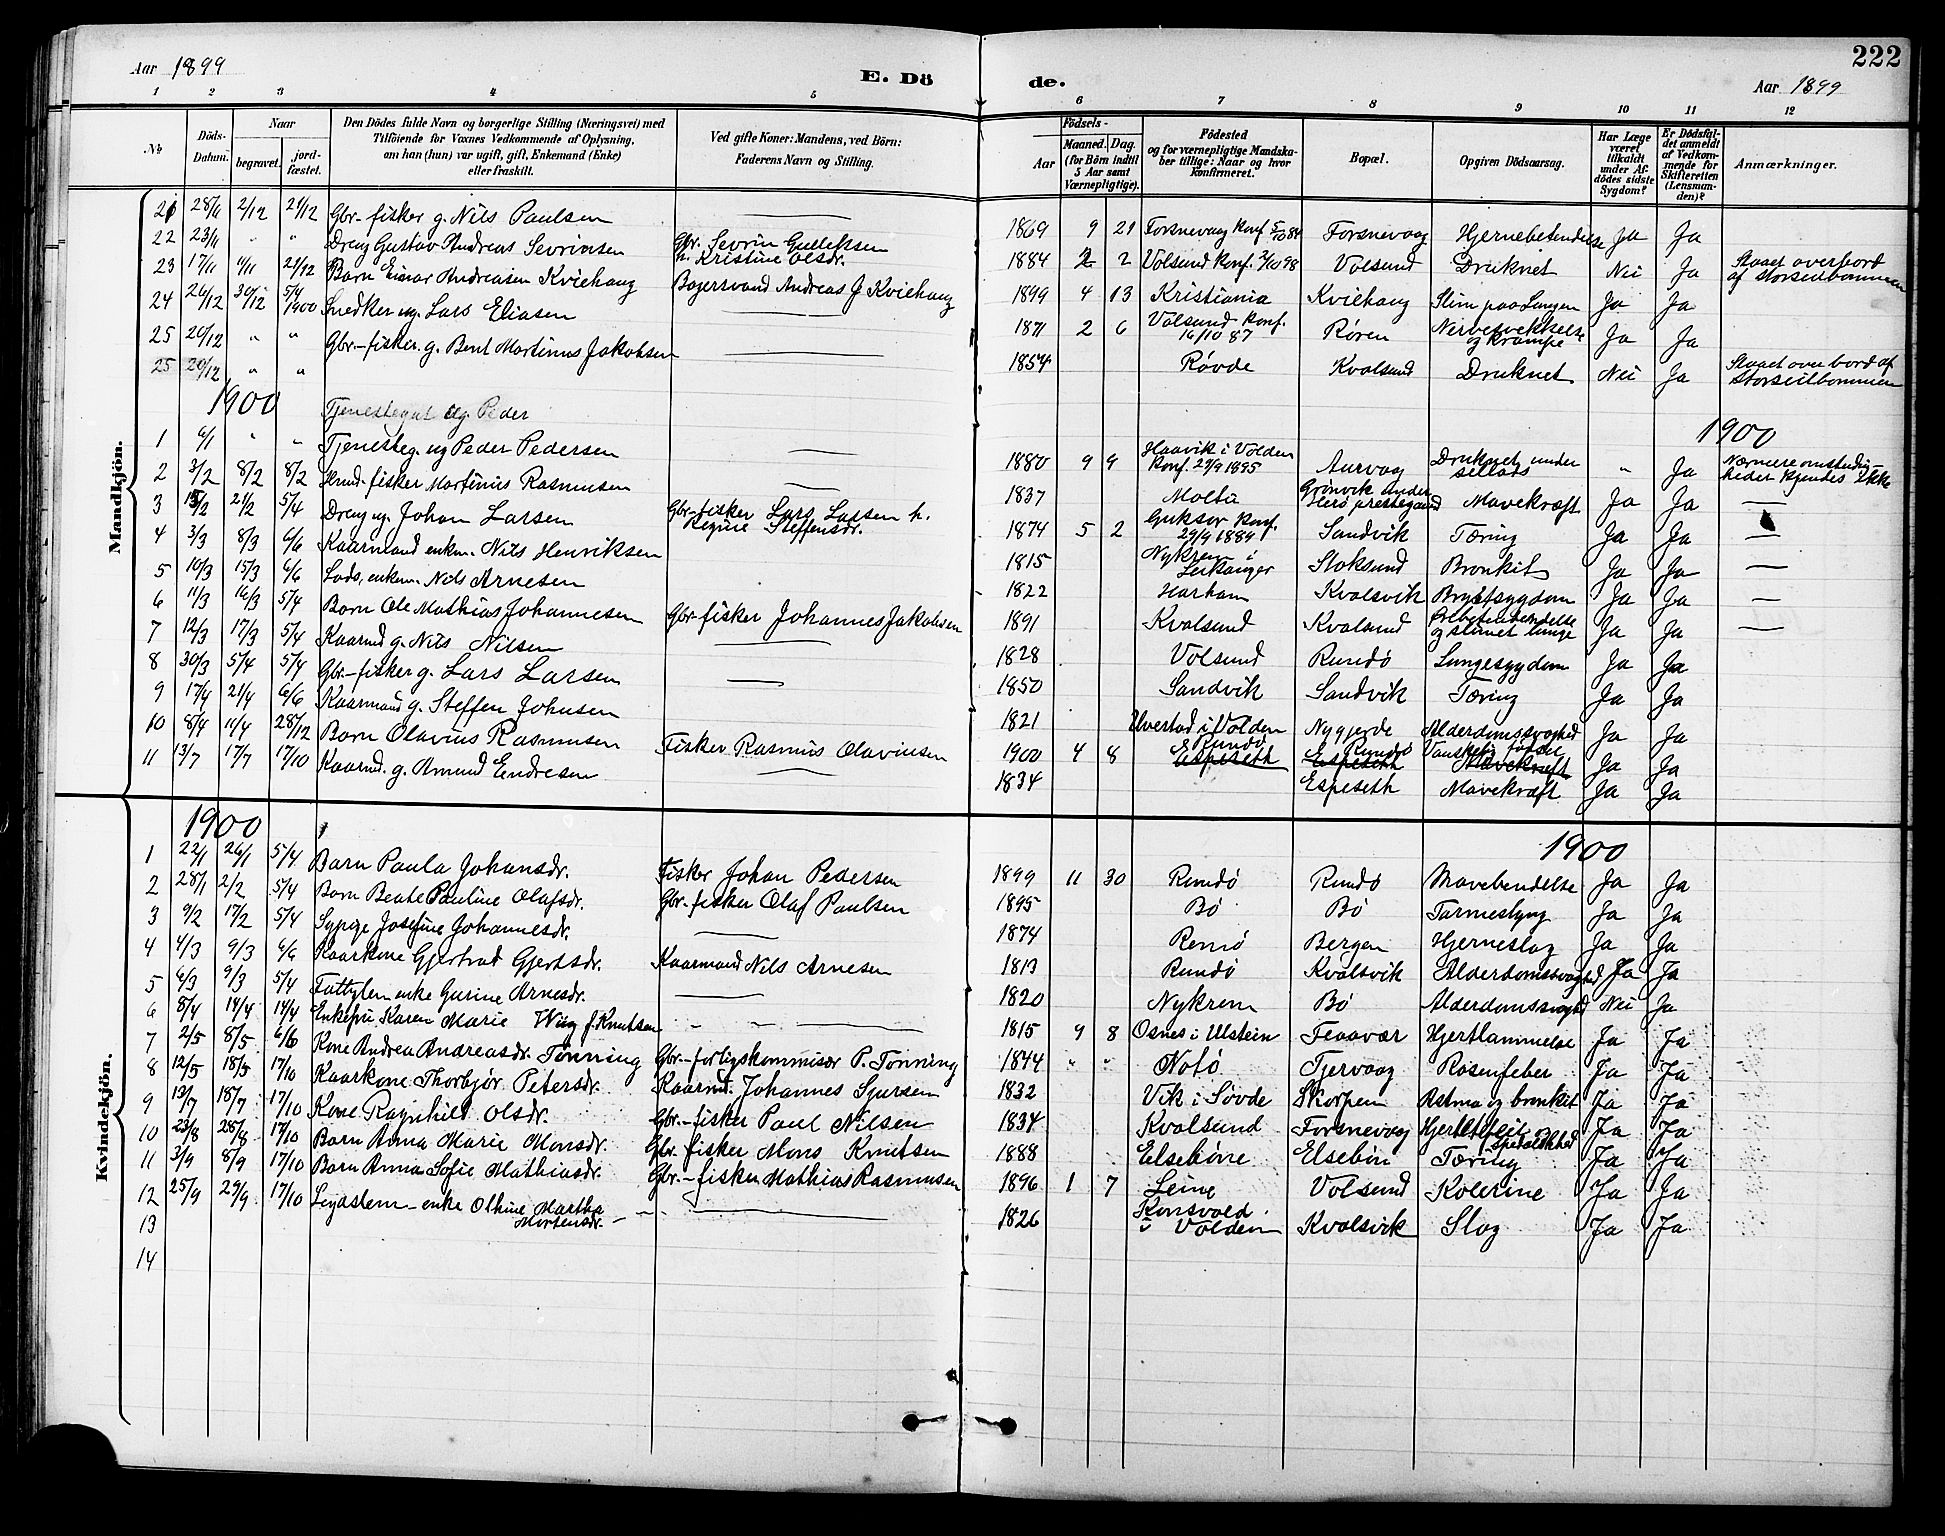 222
Aar 1899 E. Dö de. Aar 1899
1 2 3 4 5 6 7 8 9 10 11 12
№
Döds-Datum.
Naar
begravet. jord-fæstet.
Den Dödes fulde Navn og borgerlige Stilling (Næringsvei) med
Tilföiende for Voxnes Vedkommende af Oplysning,
om han (hun) var ugift, gift, Enkemand (Enke)
eller fraskilt.
Ved gifte Koner: Mandens, ved Börn:
Faderens Navn og Stilling.
Födsels-
Aar
Maaned. Dag.
(for Börn indtil
5 Aar samt
Værnepligtige).
Födested
og for værnepligtige Mandska-
ber tillige: Naar og hvor
konfirmeret.
Bopæl.
Opgiven Dödsaarsag.
Har Læge
været
tilkaldt
under Af-
dödes sidste
Sygdom?
Er Dödsfal-
det anmeldt
af Vedkom-
mende for
Skifteretten
(Lensman-
den)?
Anmærkninger.
Mandkjön.
21 28/11 2/12 21/12 Gbr-fisker g. Nils Paulsen 1869 9 21 Forsnevaag Konf. 5/10 84 Forsnevaag Hjernebetendelse Ja Ja
22 23/11 " " Dreng Gustav Andreas Sevrinsen Gbr. Sevrin Gulleksen h. Kristine Olsdr. 1884 2 2 Volsund Konf. 2/10 98 Volsund Druknet Nei Ja Slaaet overbord af storseilbommen
23 17/11 21/12 Barn Einar Andreasen Kviehaug Bogersvend Andreas J Kviehaug 1899 4 13 Kristiania Kviehaug Slim paa Lungen Ja Ja
24 26/12 30/12 5/4 1900 Snedker ug. Lars Eliasen 1871 2 6 Volsund Konf. 16/10 87 Røren Nervesvekkelse og krampe Ja Ja
25 20/12 " " Gbr-fisker g. Bent Martinus Jakobsen 1854 Røvde Kvalsund Druknet Nei Ja Slaaet over bord af storseilbommen
25 20/12 " "
1900 Tjenestegut ug. Peder
1900
1 6/1 " " Tjenesteg. ug Peder Pedersen 1880 9 9 Haavik i Volden Konf. 29/9 1895 Aurvaag Druknet under Ja Nærmere omstændig-heder kjendes ikke
2 3/2 8/2 8/2 fisker Martinus Rasmusen 1837 Moltu Grønvik under Herø prestegaard Mavekræft Ja Ja —
3 15/2 21/2 5/4 Dreng ug. Johan Larsen Gbr-fisker Lars Larsen h. Regine Steffensdr. 1874 5 2 Konf. 29/9 1889 Sandvik Tæring Ja Ja —
4 3/3 8/3 6/6 Kaarmand enkm. Nils Henriksen 1815 Nykrem i Leikanger Stoksund Bronkit Ja Ja —
5 10/3 15/3 6/6 Lods, enkem. Nils Arnesen 1822 Harham Kvalsvik Brystsygdom Ja Ja —
6 11/3 16/3 5/4 Barn Ole Mathias Johannesen Gbr-fisker Johannes Jakobsen 1891 Kvalsund Kvalsund Ja Ja —
7 12/3 17/3 5/4 Kaarmd g. Nils Nilsen 1828 Volsund Rundø Lungesygdom Ja Ja
8 30/3 5/4 5/4 Gbr-fisker g. Lars Larsen 1850 Sandvik Sandvik Tæring Ja Ja
9 17/4 21/4 6/6 Kaarmand g. Steffen Johnsen 1821 i Volden Nygjerde Alderdomssvaghed Ja Ja
10 8/4 11/4 28/12 Barn Olavius Rasmusen Fisker Rasmus Olavinsen 1900 4 8 Rundø Espeseth Rundø Espeseth Vanskelig fødsel Mavekræft Ja Ja
11 13/7 17/7 17/10 Kaarmd. g. Amund Endresen 1834 Espeseth Mavekræft Ja Ja
Kvindekjön.
1900
1900
1 22/1 26/1 5/4 Barn Paula Johansdr. Fisker Johan Pedersen 1899 11 30 Rundø Rundø Mavebendelse Ja Ja
2 28/1 2/2 5/4 Barn Beate Pauline Olafsdr. Gbr-fisker Olaf Paulsen 1895 Bø Bø Tarmeslyng Ja Ja
3 9/2 17/2 5/4 Sypige Josefine Johannesdr. 1874 Remø Bergen Hjerneslag Ja Ja
4 4/3 9/3 6/6 Kaarkone Gjertrud Gjertsdr. Kaarmand Nils Arnesen 1813 Rundø Kvalsvik Alderdomssvaghed Ja Ja
5 6/3 9/3 5/4 Fattiglem enke Gurine Arnesdr. 1820 Nykrem Bø Alderdomssvaghed Nei Ja
6 8/4 14/4 14/4 Enkefru Karen Marie Wiig f. Knutsen " " 1815 9 8 Osnes i Ulstein Teaavær Hjertlammelse Ja Ja
7 2/5 8/5 6/6 Kone Andrea Andreasdr. Tønning Gbr-forligskommisær P. Tønning 1844 " " Notø Tjervaag Rosenfeber Ja Ja
8 12/5 18/5 17/10 Kaarkone Thorbjør Petersdr. Kaarmd. Johannes Sjursen 1832 Vik i Søvde Skorpen Astma og bronkit Ja Ja
9 13/7 18/7 17/10 Kone Ragnhild Olsdr. Gbr-fisker Paul Nilsen 1834 Kvalsund Forsnevaag Hjertefeil og spedalskhed Ja Ja
10 23/8 28/8 17/10 Barn Anna Marie Monsdr. Gbr. fisker Mons Knutsen 1888 Elsebøne Elsebøn Tæring Ja Ja
11 3/9 8/9 17/10 Barn Anna Sofie Mathiasdr. Gbr-fisker Mathias Rasmusen 1896 1 7 Leine Volsund Kolerine Ja Ja
12 25/9 29/9 17/10 enke Othine Martha Mortensdr. 1826 Konsvold i Volden Kvalsvik Slag Ja Ja
13
14